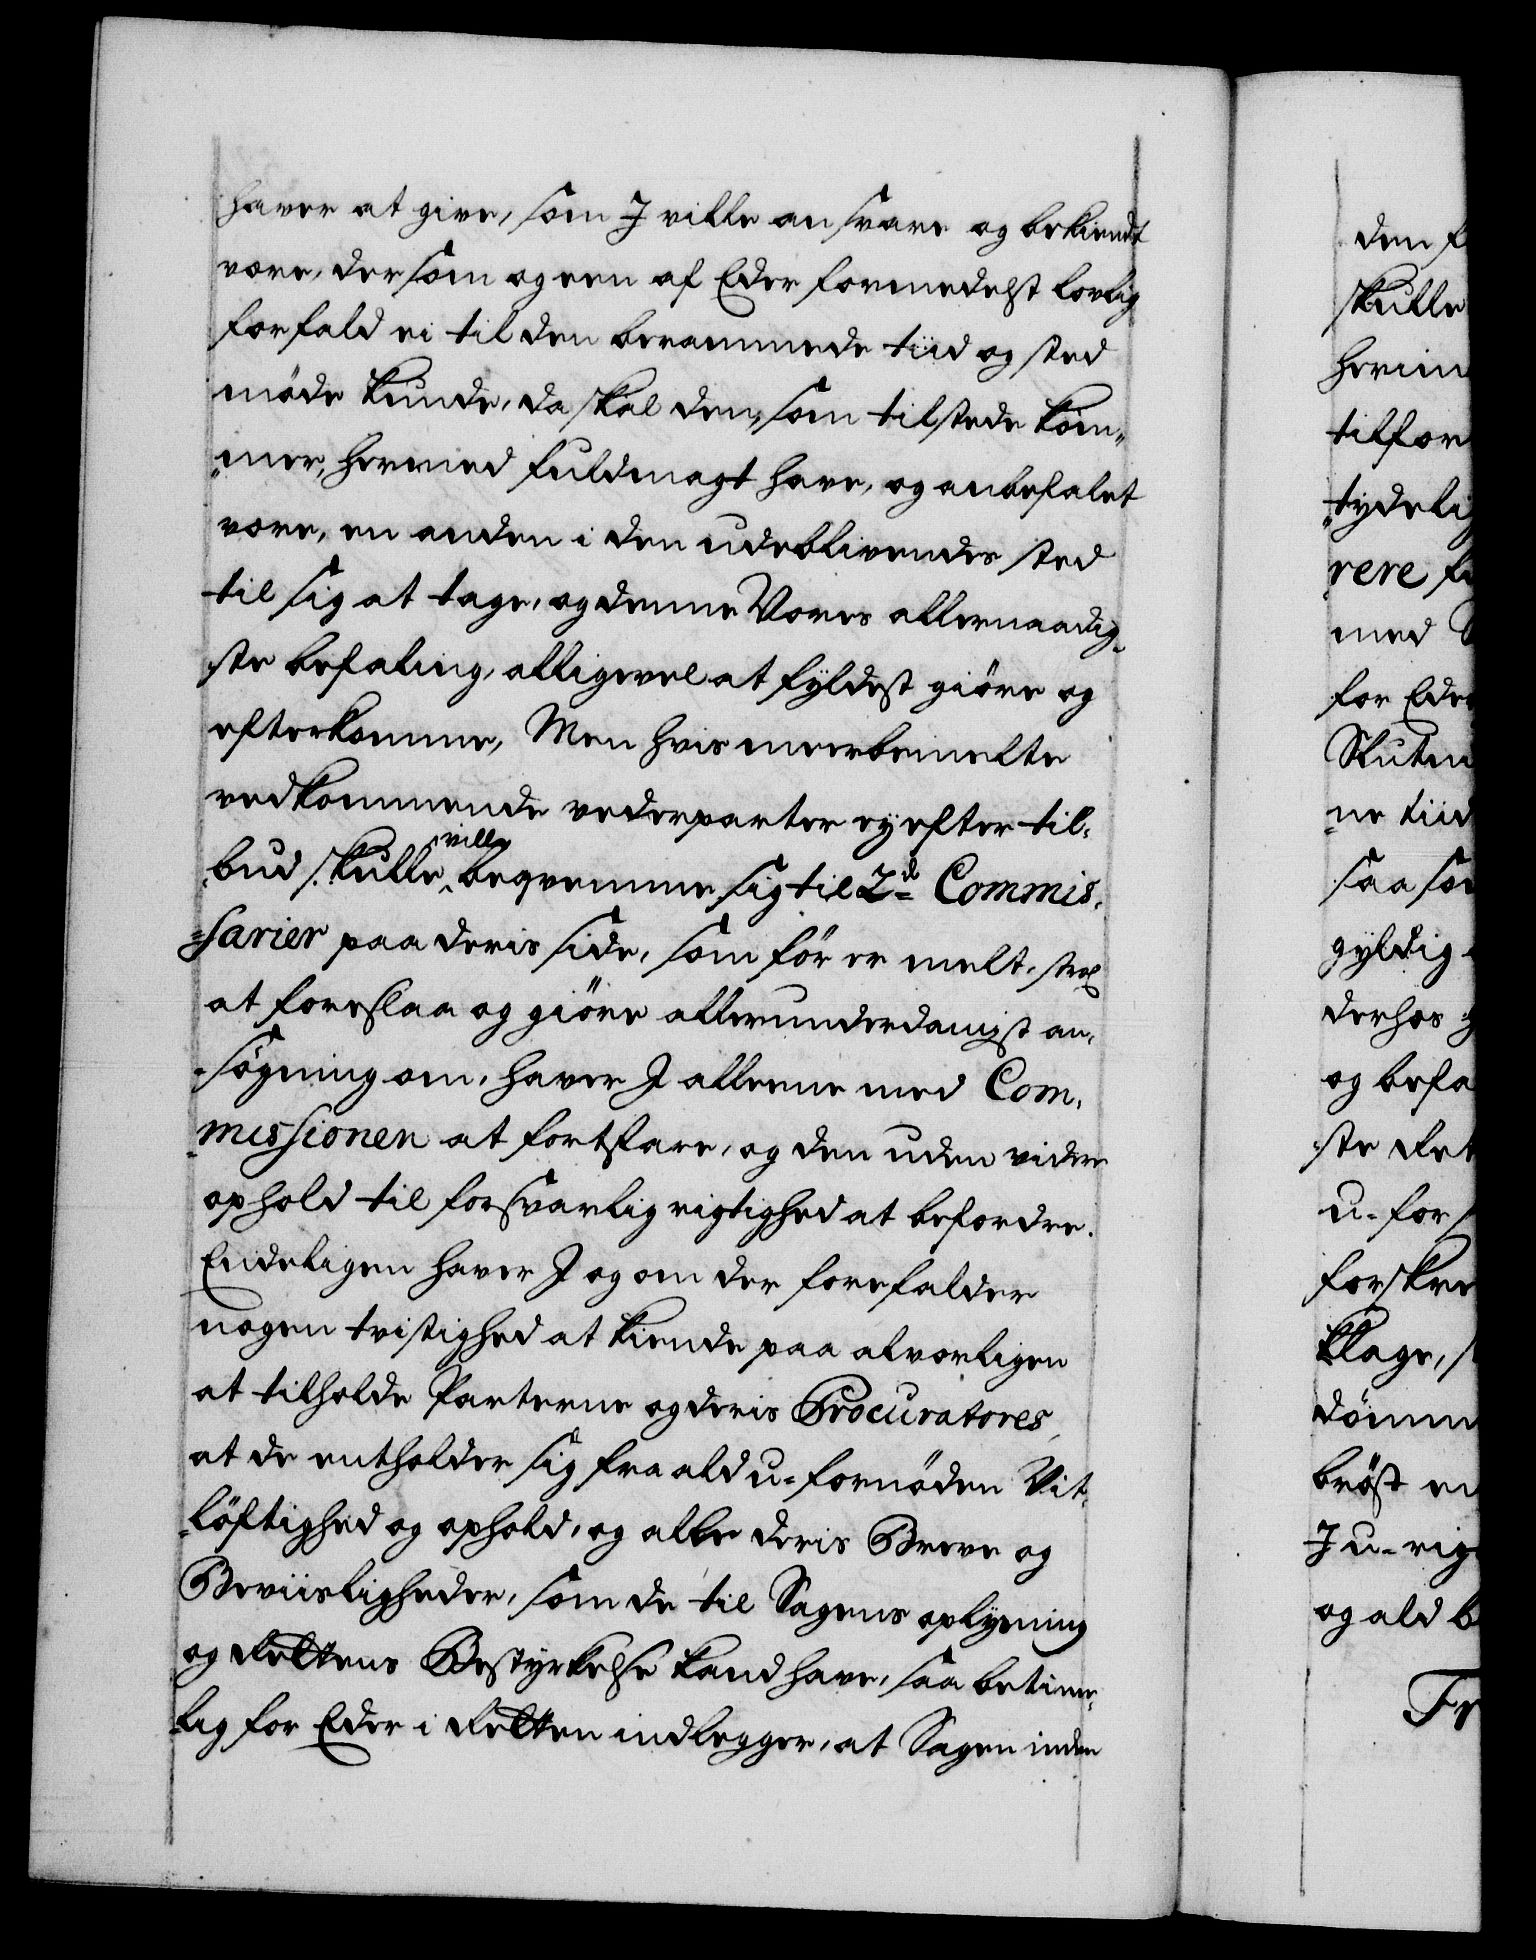 haver at give, som I ville ansvare og bekiendt
være, dersom og een af Eder formedelst lovlig
forfald ei til den berammede tiid og sted
møde kunde, da skal den, som tilstede kom„
„mer, hermed fuldmagt have, og anbefalet
være, en anden i den udeblivendes sted
til sig at tage, og denne Vores allernaadig„
ste befaling, alligevel at fyldest giøre og
efterkomme, Men hvis meerbemelte
vedkommende vederparter ey efter til„
„bud skulle ville beqvemme sig til 2de Commis„
„sarier paa deris side, som før er melt, strax
at foreslaa og giøre allerunderdanigst an„
„søgning om, haver I alleene med Com„
„missionen at fortfare, og den uden videre
ophold til forsvarlig rigtighed at befordre.
Endeligen haver I og om der forefalder
nogen tvistighed at kiende paa alvorligen
at tilholde Parterne og deris Procuratores,
at de entholder sig fra ald u-fornøden Vit„
„løftighed og ophold, og alle deris Breve og
Beviisligheder, som de til Sagens oplysning
og Rettens Bestyrkelse kand have, saa betime„
„lig for Eder i Retten indlegger, at Sagen inden
den f
skulle
herim
tilfor
„tydelig
„rere
med
for Eder
Skuten
„ne tiid
saa som
gyldig
derhos
og befa
ste Ret
u-for
forskre
klage,
dømm
brøst
I u-rig
og ald
Fr